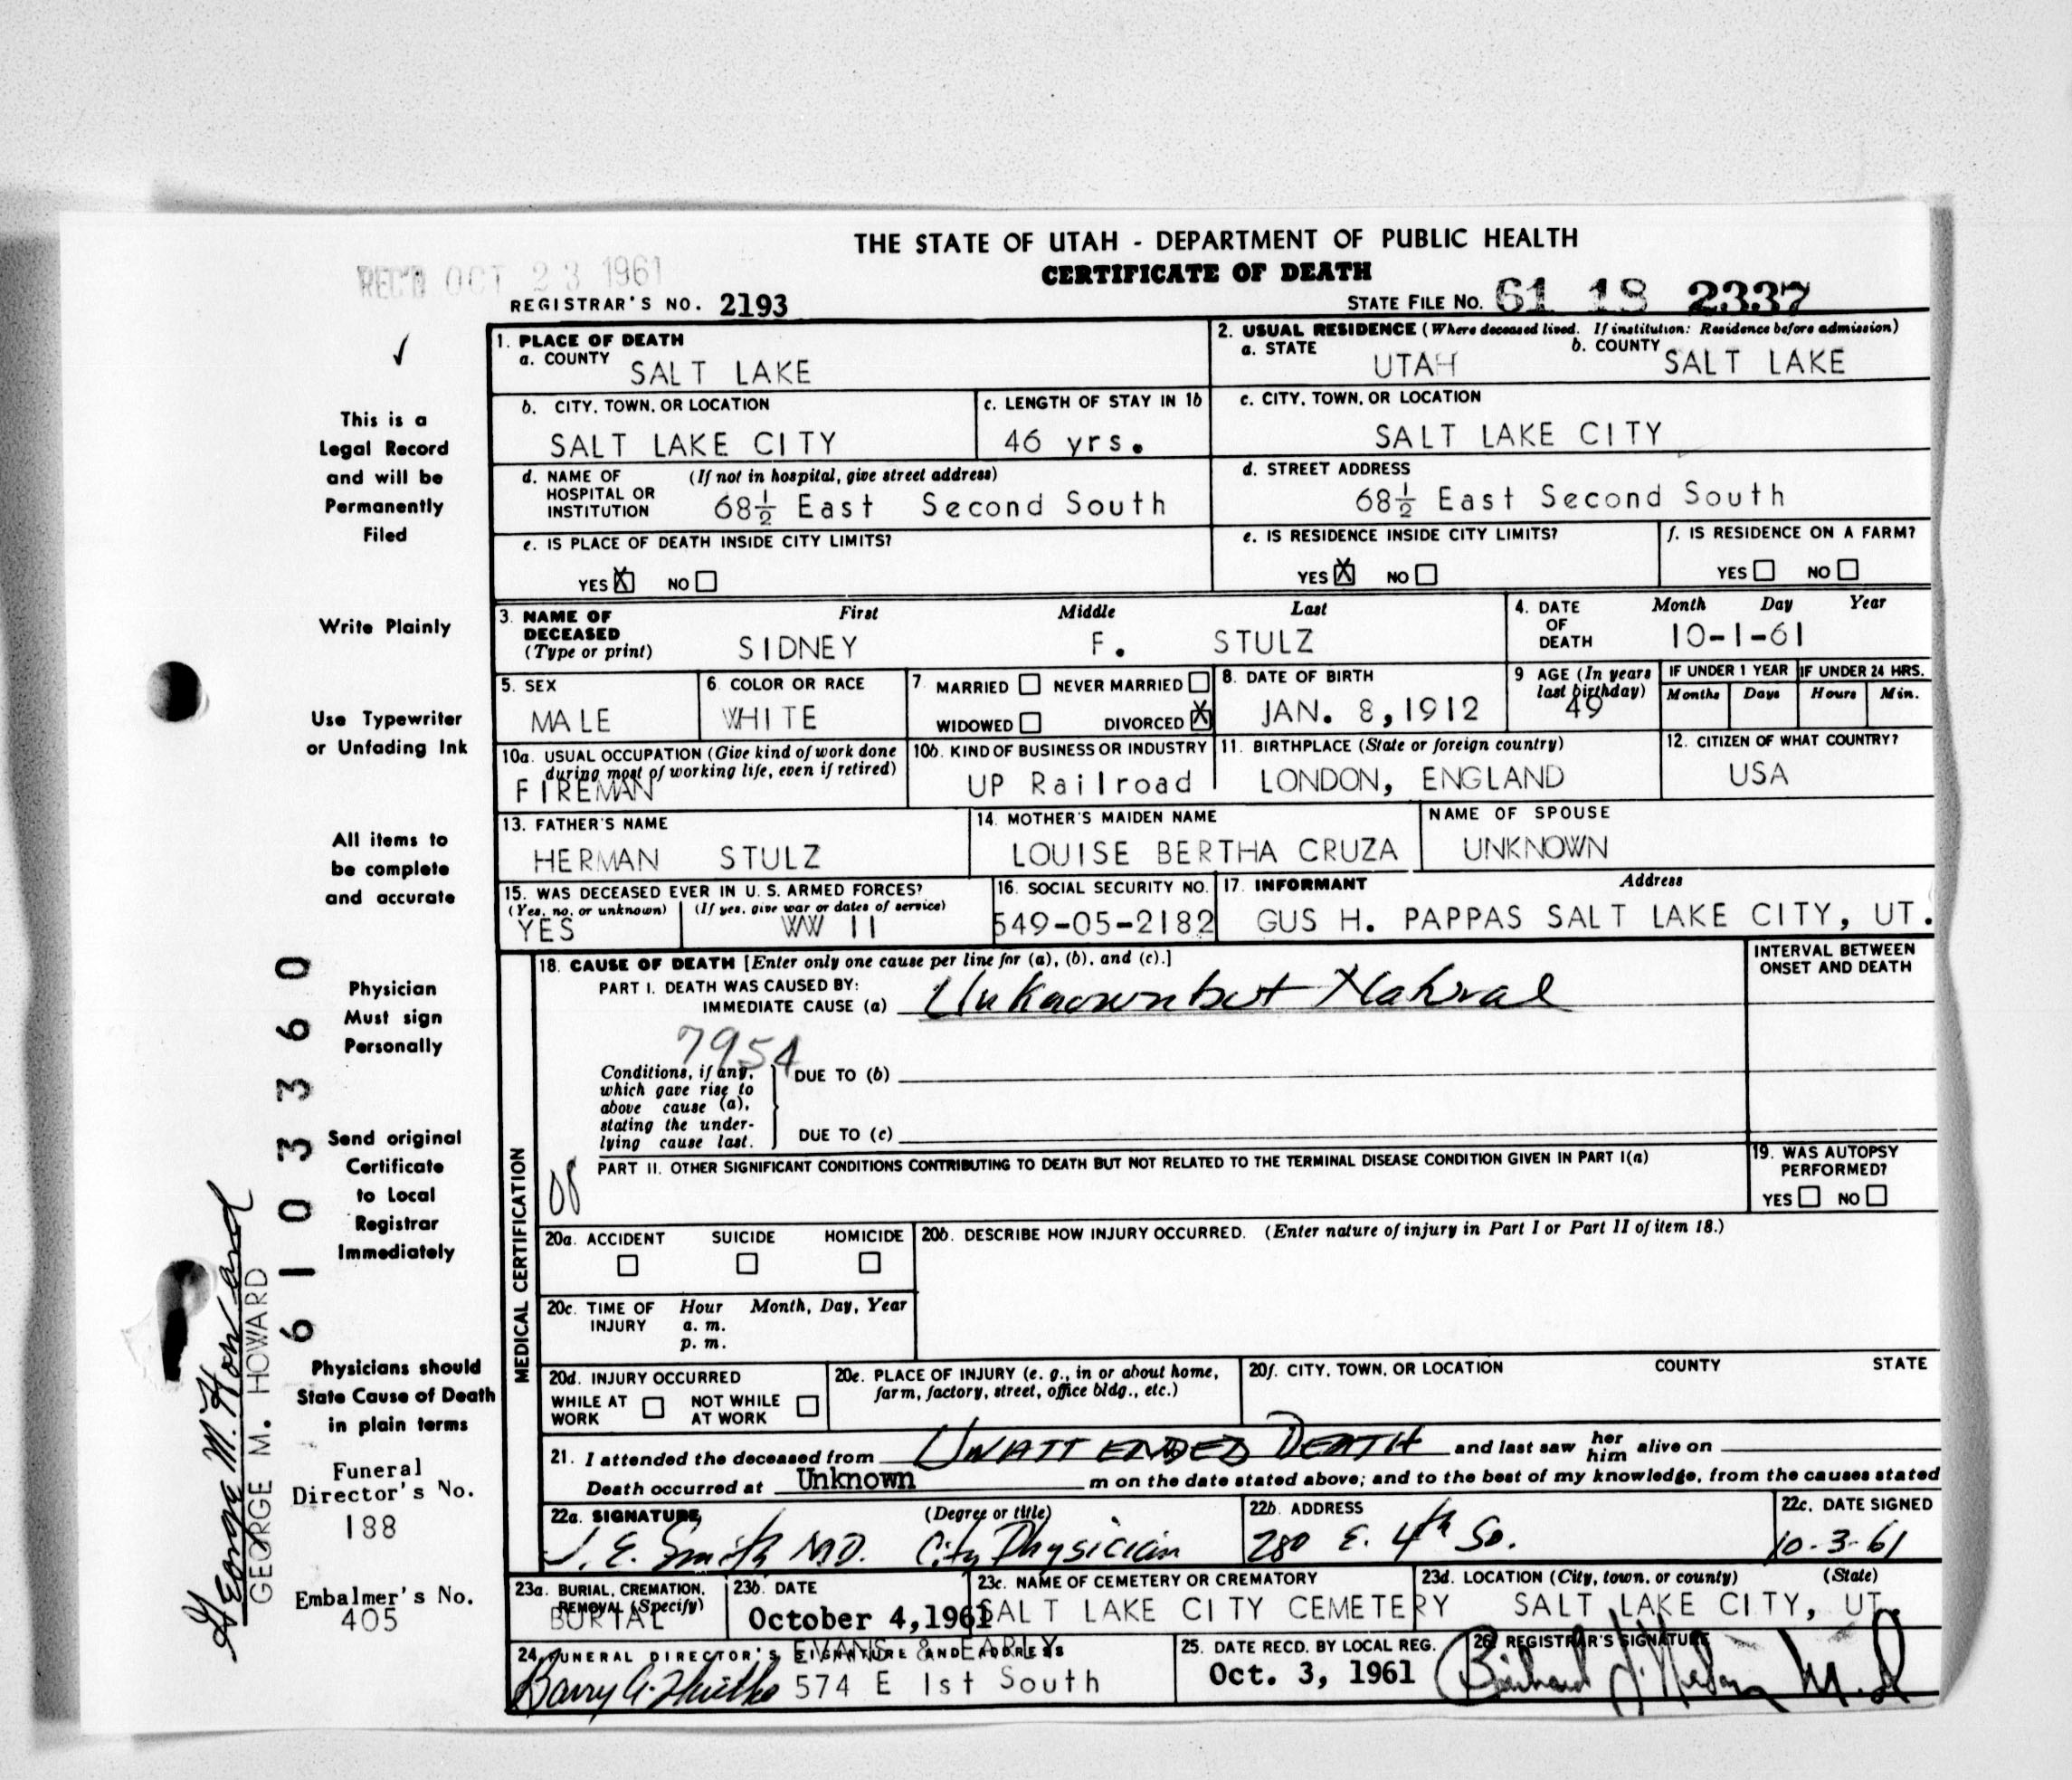 THE STATE OF UTAH - DEPARTMENT OF PUBLIC HEALTH
CERTIFICATE OF DEATH
REC'D OCT 23 1961
REGISTRAR'S NO. 2193
STATE FILE NO. 61 18 2337
This is a
Legal Record
and will be
Permanently
Filed
Write Plainly
Use Typewriter
or Unfading Ink
All items to
be complete
and accurate
Physician
Must sign
Personally
Send original
Certificate
to Local
Registrar
Immediately
Physicians should
State Cause of Death
in plain terms
Funeral
Director's No.
188
Embalmer's No.
405
George M. Howard
GEORGE M. HOWARD
6103360
1. PLACE OF DEATH
a. COUNTY
SALT LAKE
2. USUAL RESIDENCE (Where deceased lived. If institution: Residence before admission)
a. STATE b. COUNTY
UTAH SALT LAKE
b. CITY, TOWN, OR LOCATION
SALT LAKE CITY
c. LENGTH OF STAY IN 1b
46 yrs.
c. CITY, TOWN, OR LOCATION
SALT LAKE CITY
d. NAME OF (If not in hospital, give street address)
HOSPITAL OR
INSTITUTION
68½ East Second South
d. STREET ADDRESS
68½ East Second South
e. IS PLACE OF DEATH INSIDE CITY LIMITS?
YES X NO
e. IS RESIDENCE INSIDE CITY LIMITS?
YES X NO
f. IS RESIDENCE ON A FARM?
YES NO
3. NAME OF First Middle Last
DECEASED
(Type or print) SIDNEY F. STULZ
4. DATE Month Day Year
OF
DEATH 10-1-61
5. SEX
MALE
6. COLOR OR RACE
WHITE
7. MARRIED NEVER MARRIED
WIDOWED DIVORCED X
8. DATE OF BIRTH
JAN. 8, 1912
9 AGE (In years
last birthday)
49
IF UNDER 1 YEAR IF UNDER 24 HRS.
Months Days Hours Min.
10a. USUAL OCCUPATION (Give kind of work done
during most of working life, even if retired)
FIREMAN
10b. KIND OF BUSINESS OR INDUSTRY
UP Railroad
11. BIRTHPLACE (State or foreign country)
LONDON, ENGLAND
12. CITIZEN OF WHAT COUNTRY?
USA
13. FATHER'S NAME
HERMAN STULZ
14. MOTHER'S MAIDEN NAME
LOUISE BERTHA CRUZA
NAME OF SPOUSE
UNKNOWN
15. WAS DECEASED EVER IN U. S. ARMED FORCES?
(Yes, no, or unknown) (If yes, give war or dates of service)
YES WW II
16. SOCIAL SECURITY NO.
549-05-2182
17. INFORMANT Address
GUS H. PAPPAS SALT LAKE CITY, UT.
MEDICAL CERTIFICATION
18. CAUSE OF DEATH [Enter only one cause per line for (a), (b), and (c).]
INTERVAL BETWEEN
ONSET AND DEATH
PART I. DEATH WAS CAUSED BY:
IMMEDIATE CAUSE (a) Unknown but Natural
7954
Conditions, if any,
which gave rise to
above cause (a),
stating the under-
lying cause last.
DUE TO (b)
DUE TO (c)
PART II. OTHER SIGNIFICANT CONDITIONS CONTRIBUTING TO DEATH BUT NOT RELATED TO THE TERMINAL DISEASE CONDITION GIVEN IN PART I(a)
19. WAS AUTOPSY
PERFORMED?
YES NO
20a. ACCIDENT SUICIDE HOMICIDE
20b. DESCRIBE HOW INJURY OCCURRED. (Enter nature of injury in Part I or Part II of item 18.)
20c. TIME OF Hour Month, Day, Year
INJURY a. m.
p. m.
20d. INJURY OCCURRED
WHILE AT NOT WHILE
WORK AT WORK
20e. PLACE OF INJURY (e. g., in or about home,
farm, factory, street, office bldg., etc.)
20f. CITY, TOWN, OR LOCATION COUNTY STATE
21. I attended the deceased from UNATTENDED DEATH and last saw her him alive on
Death occurred at Unknown m on the date stated above; and to the best of my knowledge, from the causes stated
22a. SIGNATURE (Degree or title)
J. E. Smith M.D. City Physician
22b. ADDRESS
280 E. 4th So.
22c. DATE SIGNED
10-3-61
23a. BURIAL, CREMATION,
REMOVAL (Specify)
BURIAL
23b. DATE
October 4, 1961
23c. NAME OF CEMETERY OR CREMATORY
SALT LAKE CITY CEMETERY
23d. LOCATION (City, town, or county) (State)
SALT LAKE CITY, UT.
24. FUNERAL DIRECTOR'S SIGNATURE AND ADDRESS
EVANS & EARLY
574 E 1st South
25. DATE RECD. BY LOCAL REG.
Oct. 3, 1961
26. REGISTRAR'S SIGNATURE